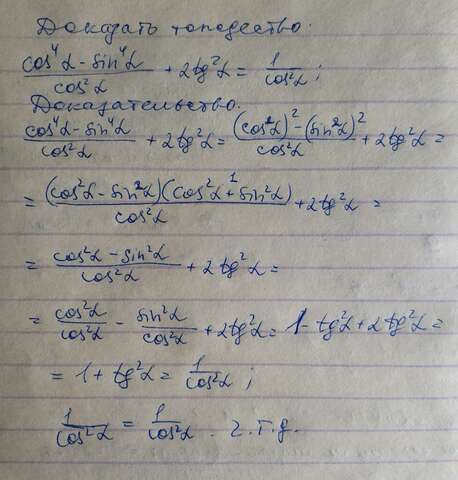 Доказать тождество.
cos⁴α - sin⁴α / cos²α + 2tg²α = 1 / cos²α ;
Доказательство.
cos⁴α - sin⁴α / cos²α + 2tg²α = (cos²α)² - (sin²α)² / cos²α + 2tg²α =
= (cos²α - sin²α)(cos²α + sin²α) / cos²α + 2tg²α =
1
= cos²α - sin²α / cos²α + 2tg²α =
= cos²α / cos²α - sin²α / cos²α + 2tg²α = 1 - tg²α + 2tg²α =
= 1 + tg²α = 1 / cos²α ;
1 / cos²α = 1 / cos²α . ч.т.д.